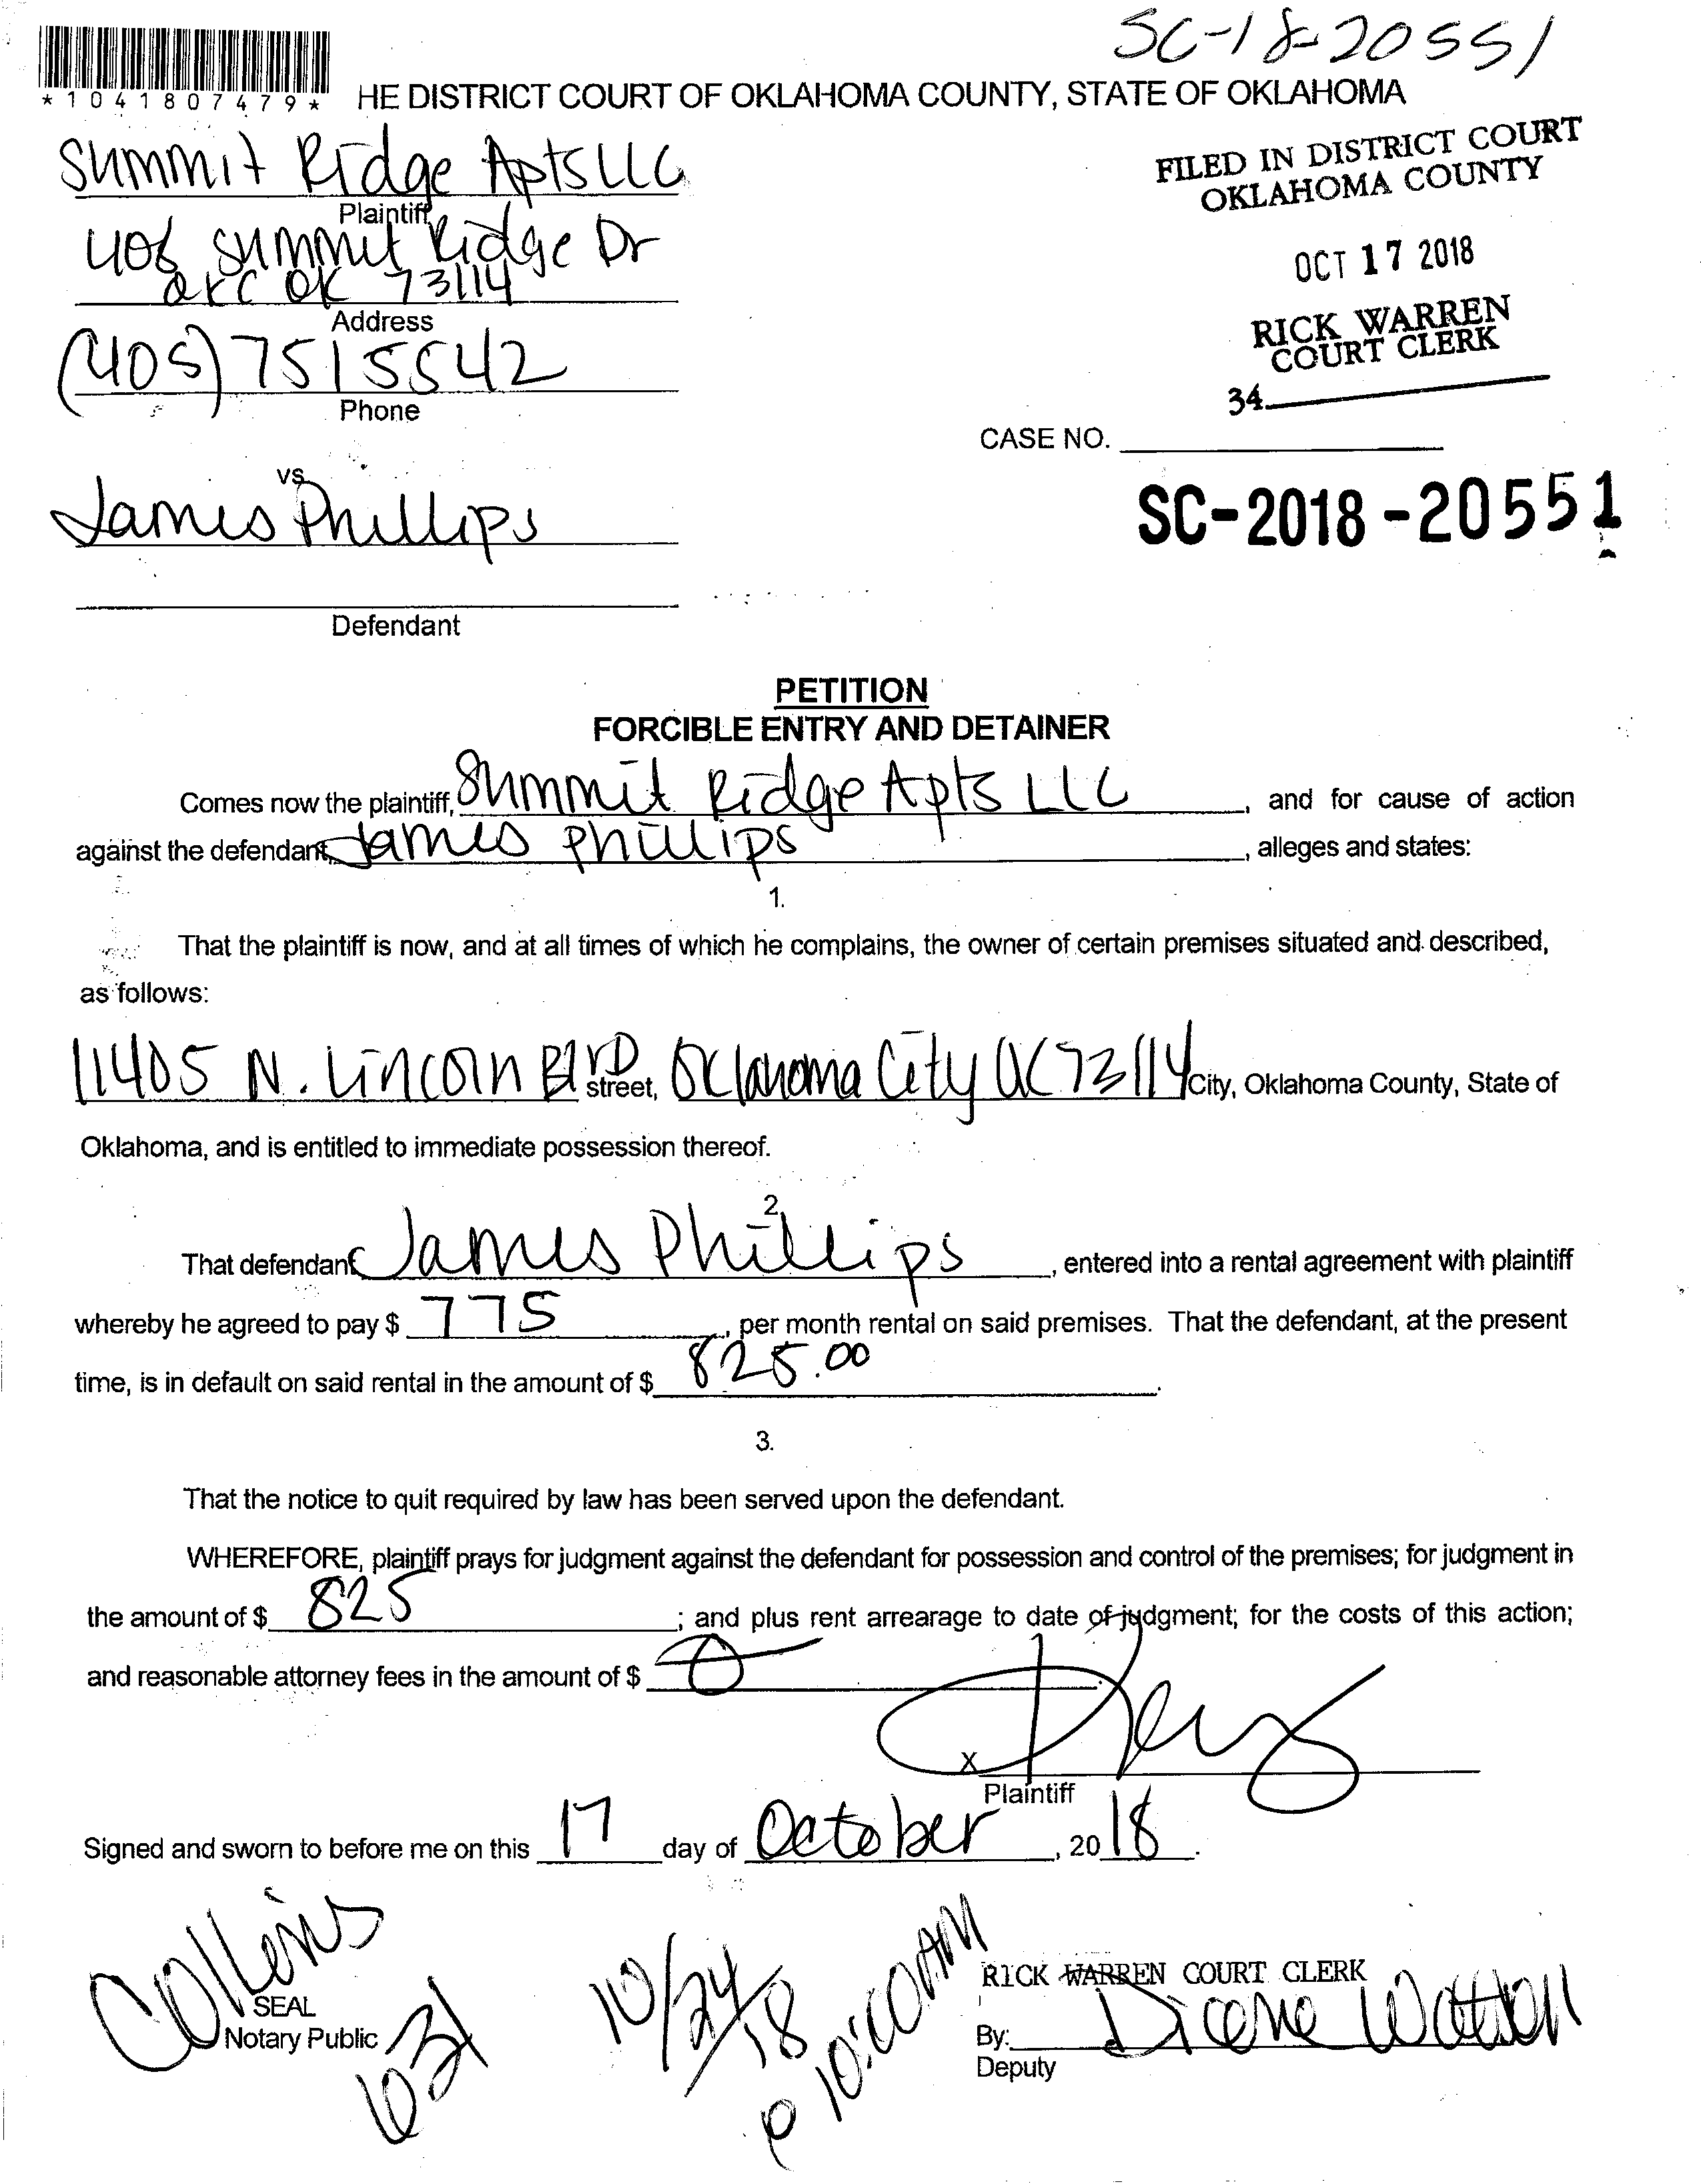 SC-18-20551
*1041807479*
HE DISTRICT COURT OF OKLAHOMA COUNTY, STATE OF OKLAHOMA
Summit Ridge Apts LLC
Plaintiff
FILED IN DISTRICT COURT
OKLAHOMA COUNTY
408 Summit Ridge Dr
OKC OK 73114
Address
OCT 17 2018
RICK WARREN
COURT CLERK
(405) 7515542
Phone
34
CASE NO.
vs.
James Phillips
SC-2018-20551
Defendant
PETITION
FORCIBLE ENTRY AND DETAINER
Comes now the plaintiff, Summit Ridge Apts LLC, and for cause of action
against the defendant, James Phillips, alleges and states:
1.
That the plaintiff is now, and at all times of which he complains, the owner of certain premises situated and described,
as follows:
11405 N. Lincoln Blvd street, Oklahoma City OK 73114 City, Oklahoma County, State of
Oklahoma, and is entitled to immediate possession thereof.
2.
That defendant James Phillips, entered into a rental agreement with plaintiff
whereby he agreed to pay $ 775, per month rental on said premises. That the defendant, at the present
time, is in default on said rental in the amount of $ 825.00.
3.
That the notice to quit required by law has been served upon the defendant.
WHEREFORE, plaintiff prays for judgment against the defendant for possession and control of the premises; for judgment in
the amount of $ 825; and plus rent arrearage to date of judgment; for the costs of this action;
and reasonable attorney fees in the amount of $ 0.
X
Plaintiff
Signed and sworn to before me on this 17 day of October, 2018.
Collins
SEAL
Notary Public
631
10/24/18
@ 10:00AM
RICK WARREN COURT CLERK
By: Diane Watson
Deputy